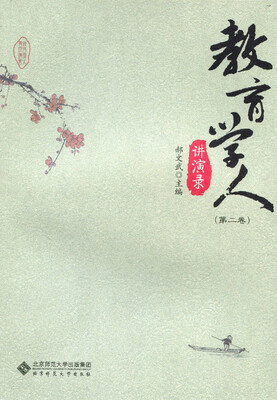 教育学人
讲演录
郝文武○主编
(第二卷)
北京师范大学出版集团
北京师范大学出版社